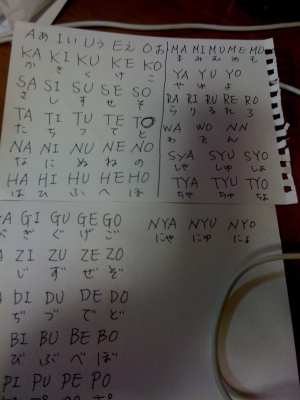 Aあ Iい Uう Eえ Oお
KA KI KU KE KO
か き く け こ
SA SI SU SE SO
さ し す せ そ
TA TI TU TE TO
た ち つ て と
NA NI NU NE NO
な に ぬ ね の
HA HI HU HE HO
は ひ ふ へ ほ
MA MI MU ME MO
ま み む め も
YA YU YO
や ゆ よ
RA RI RU RE RO
ら り る れ ろ
WA WO NN
わ を ん
SYA SYU SYO
しゃ しゅ しょ
TYA TYU TYO
ちゃ ちゅ ちょ
GI GU GE GO
ぎ ぐ げ ご
ZI ZU ZE ZO
じ ず ぜ ぞ
DI DU DE DO
ぢ づ で ど
BI BU BE BO
び ぶ べ ぼ
PI PU PE PO
NYA NYU NYO
にゃ にゅ にょ